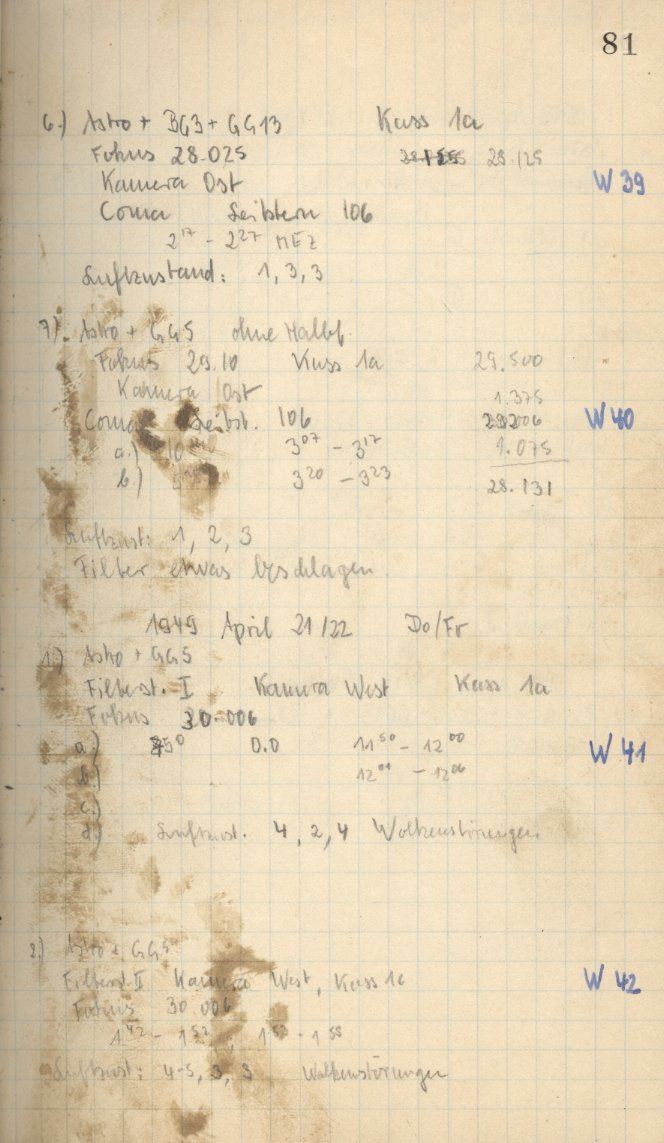 81
6.) Astro + BG3 + GG13 Kass 1a
Fokus 28.025 28.125
Kamera Ost W 39
Coma Leitstern 106
2¹⁷ - 2²⁷ MEZ
Luftzustand: 1, 3, 3
7). Astro + GG5 ohne Halbf.
Fokus 29.10 Kass 1a 29.500
Kamera Ost 1.375
Coma Leitst. 106 W 40
a.) 10 3⁰⁷ - 3¹⁷ 1.075
b.) 3²⁰ - 3²³ 28.131
Luftzust: 1, 2, 3
Filter etwas beschlagen
1949 April 21/22 Do/Fr
1.) Astro + GG5
Filterst. I Kamera West Kass 1a
Fokus 30.006
a.) 0.0 11⁵⁰ - 12⁰⁰ W 41
b.) 12⁰¹ - 12⁰⁶
c.)
d.) Luftzust. 4, 2, 4 Wolkenstörungen
2.) Astro + GG5
Filterst. II Kamera West, Kass 1a W 42
Fokus 30.006
1⁴² - 1⁵², 1⁵³ - 1⁵⁸
Luftzust: 4-5, 3, 3 Wolkenstörungen